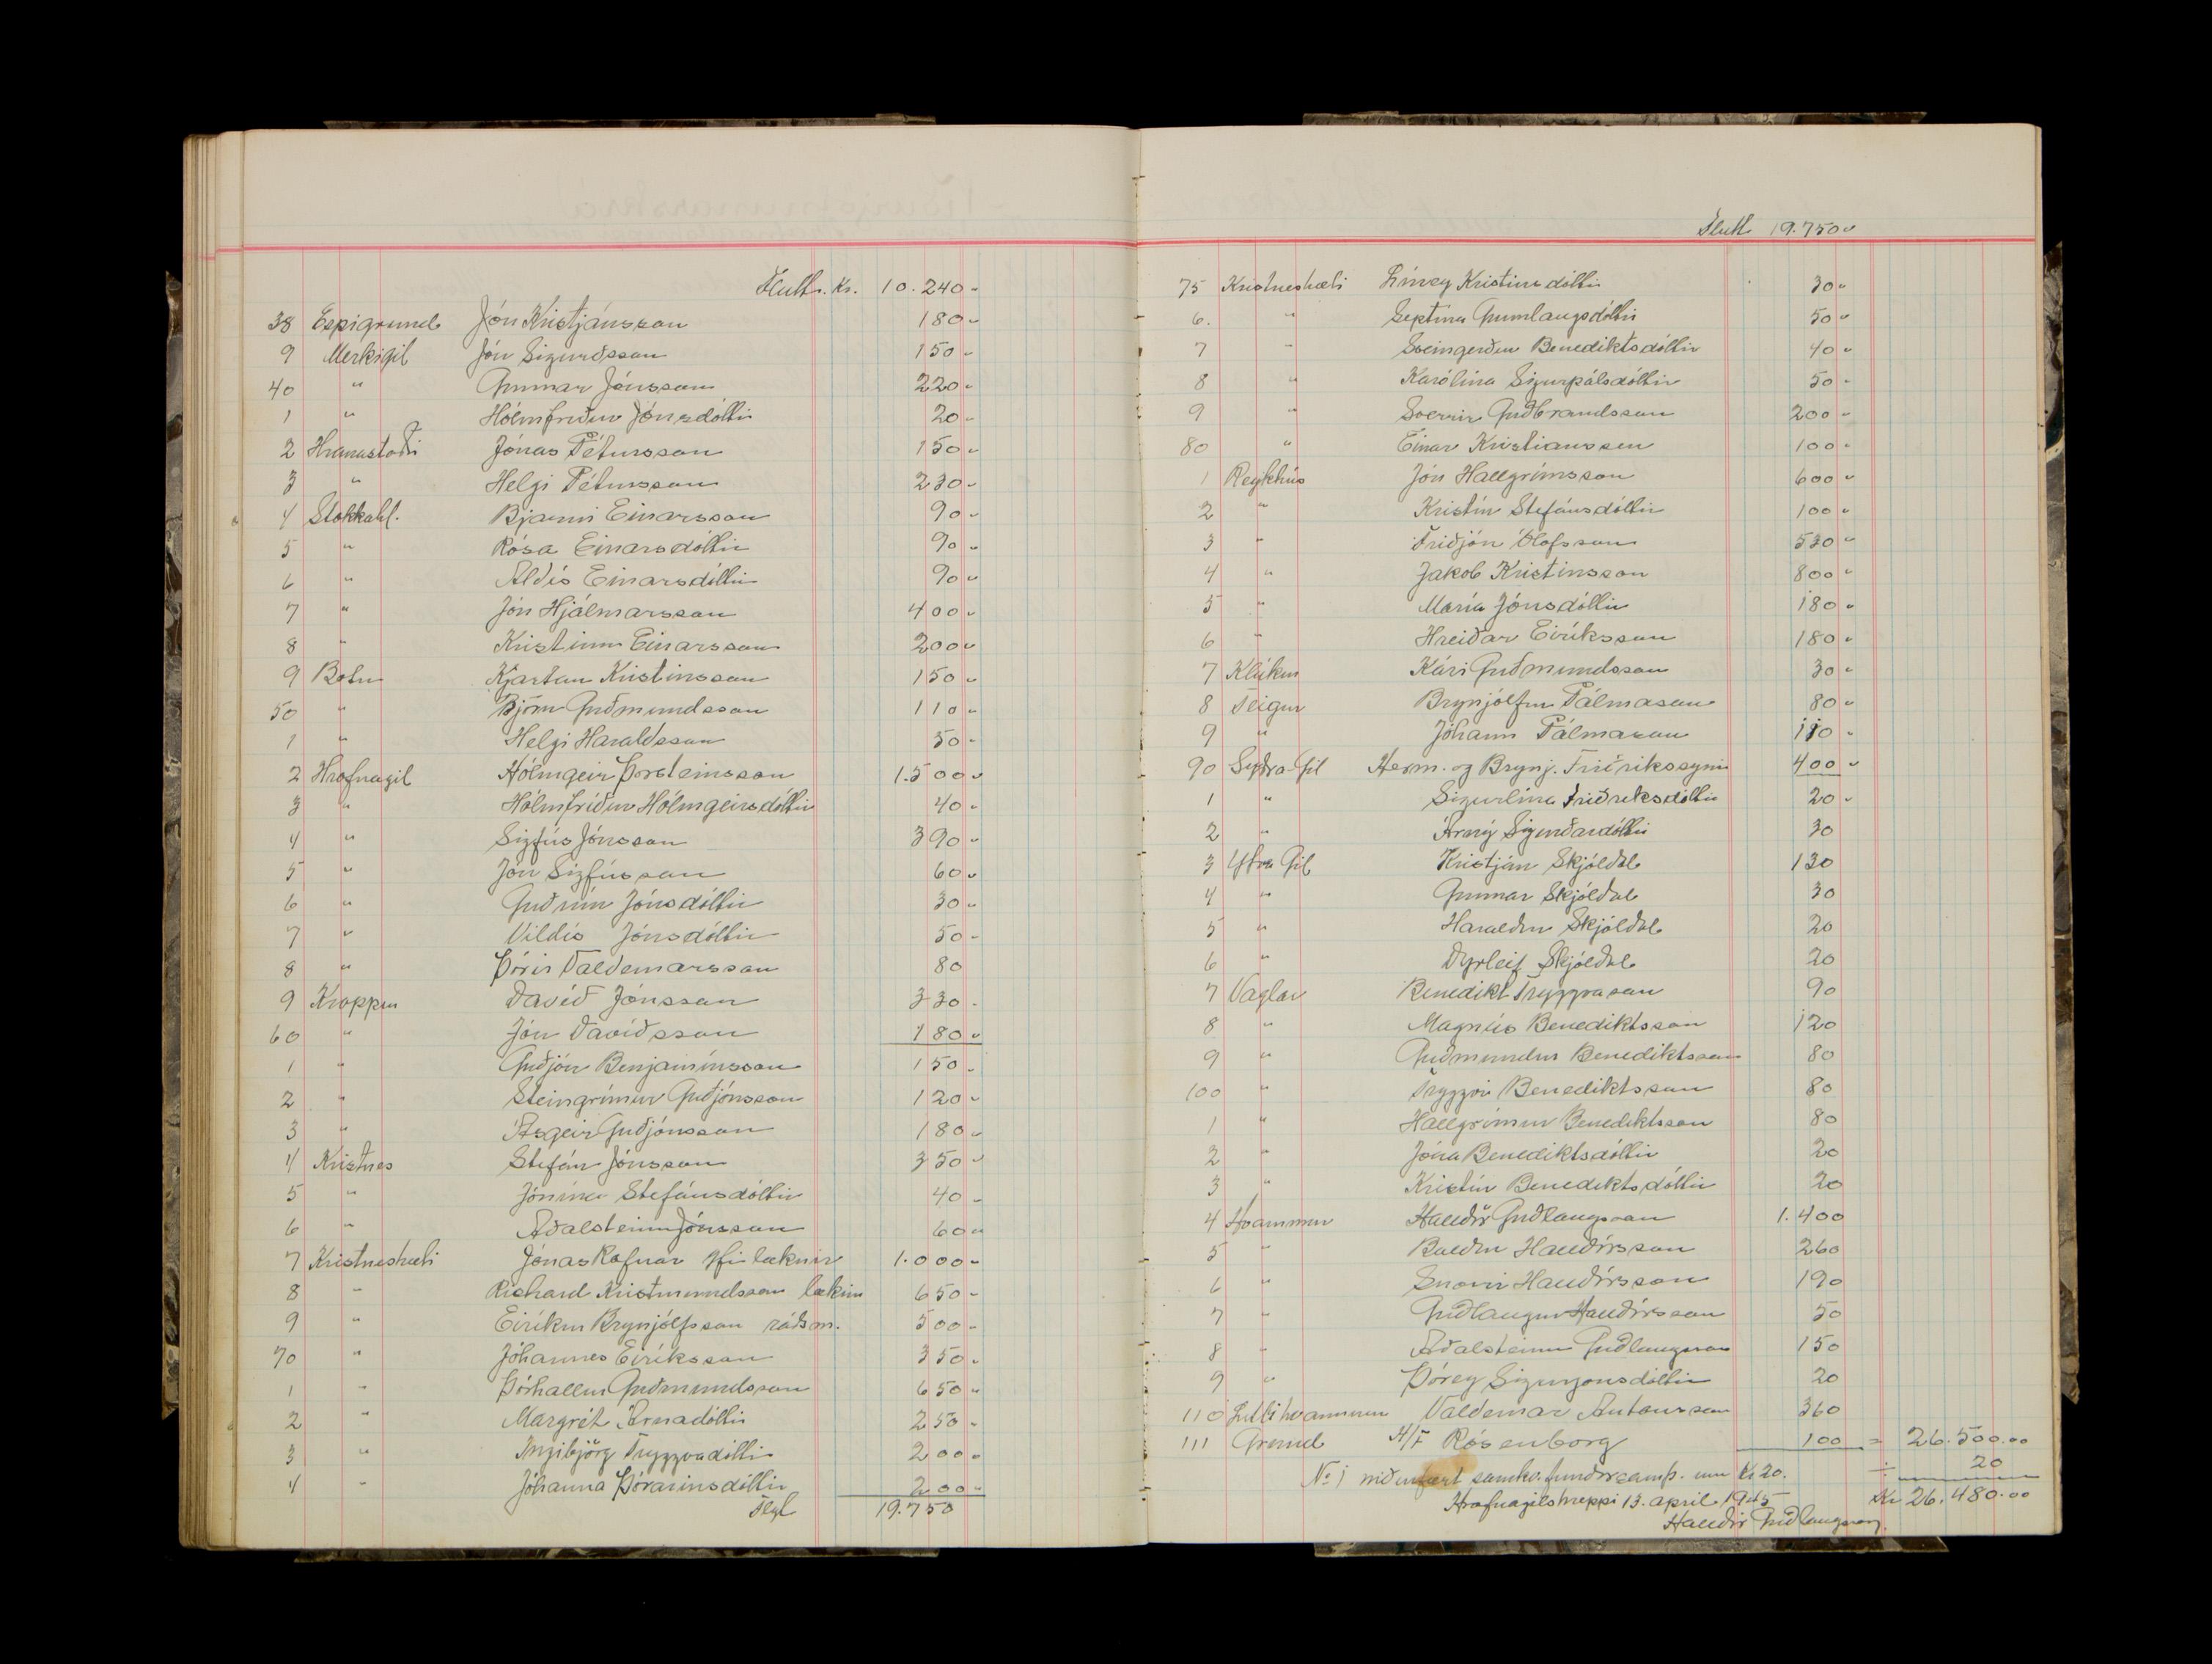 Flutt. Kr. 10.240 "
38 Espigrund Jón Kristjánsson 180 "
9 Merkigil Jón Sigurðsson 150 "
40 " Gunnar Jónsson 220 "
1 " Hólmfríður Jónsdóttir 20 "
2 Hranastaðir Jónas Pétursson 150 "
3 " Helgi Pétursson 230 "
4 Stokkahl. Bjarni Einarsson 90 "
5 " Rósa Einarsdóttir 90 "
6 " Aldís Einarsdóttir 90 "
7 " Jón Hjálmarsson 400 "
8 " Kristinn Einarsson 200 "
9 Botn Kjartan Kristinsson 150 "
50 " Björn Guðmundsson 110 "
1 " Helgi Haraldsson 50 "
2 Hrafnagil Hólmgeir Þorsteinsson 1.500 "
3 " Hólmfríður Hólmgeirsdóttir 40 "
4 " Sigfús Jónsson 390 "
5 " Jón Sigfússon 60 "
6 " Guðrún Jónsdóttir 30 "
7 " Valdís Jónsdóttir 50 "
8 " Þórir Valdemarsson 80
9 Kroppur Davíð Jónsson 330 "
60 " Jón Davíðsson 180 "
1 " Guðjón Benjamínsson 150 "
2 " Steingrímur Guðjónsson 120 "
3 " Ásgeir Guðjónsson 180 "
4 Kristnes Stefán Jónsson 350 "
5 " Jónína Stefánsdóttir 40 "
6 " Aðalsteinn Jónsson 60 "
7 Kristneshæli Jónas Rafnar yfirlæknir 1.000 "
8 " Richard Kristmundsson læknir 650 "
9 " Eiríkur Brynjólfsson ráðsm. 500 "
70 " Jóhannes Eiríksson 350 "
1 " Þórhallur Guðmundsson 650 "
2 " Margrét Árnadóttir 250 "
3 " Ingibjörg Tryggvadóttir 200 "
4 " Jóhanna Þórarinsdóttir 200 "
Flyt 19.750
Flutt 19.750 "
75 Kristneshæli Líney Kristinsdóttir 30 "
6. " Septína Gunnlaugsdóttir 50 "
7 " Sveingerður Benediktsdóttir 40 "
8 " Karólína Sigurpálsdóttir 50 "
9 " Sverrir Guðbrandsson 200 "
80 " Einar Kristianssen 100 "
1 Reykhús Jón Hallgrímsson 600 "
2 " Kristín Stefánsdóttir 100 "
3 " Friðjón Ólafsson 530 "
4 " Jakob Kristinsson 800 "
5 " María Jónsdóttir 180 "
6 " Hreiðar Eiríksson 180 "
7 Klúkur Kári Guðmundsson 30 "
8 Teigur Brynjólfur Pálmason 80 "
9 " Jóhann Pálmason 110 "
90 Syðra-Gil Herm. og Brynj. Friðrikssynir 400 "
1 " Sigurlína Friðriksdóttir 20 "
2 " Árný Sigurðardóttir 30
3 Ytra Gil Kristján Skjóldal 130
4 " Gunnar Skjóldal 30
5 " Haraldur Skjóldal 20
6 " Dýrleif Skjóldal 20
7 Vaglar Benedikt Tryggvason 90
8 " Magnús Benediktsson 120
9 " Guðmundur Benediktsson 80
100 " Tryggvi Benediktsson 80
1 " Hallgrímur Benediktsson 80
2 " Jóna Benediktsdóttir 20
3 " Kristín Benediktsdóttir 20
4 Hvammur Halldór Guðlaugsson 1.400
5 " Baldur Halldórsson 260
6 " Snorri Halldórsson 190
7 " Guðlaugur Halldórsson 50
8 " Aðalsteinn Guðlaugsson 150
9 " Þórey Sigurjónsdóttir 20
110 Litlihvammur Valdemar Antonsson 360
111 Grund H/F Rósenborg 100 = 26.500.00
No 1 niðurfært samkv. fundarsamþ. um kr 20. ÷ 20
Hrafnagilshreppi 13. apríl 1945 Kr 26.480.00
Halldór Guðlaugsson.